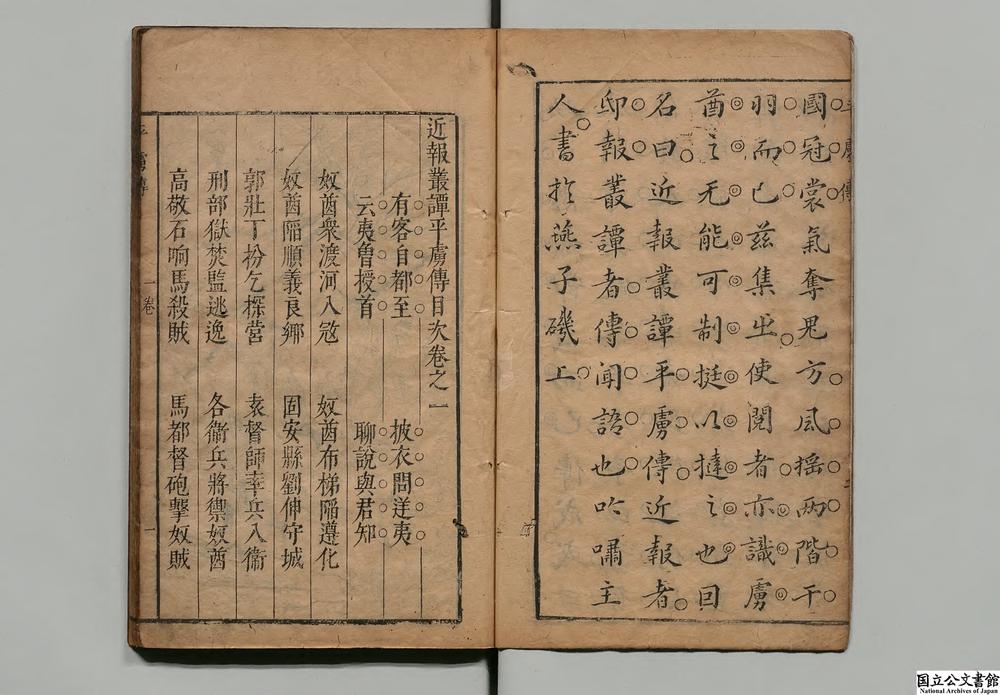 國冠裳氣奪鬼方風搖兩階干
羽而已茲集出使閱者亦識虜
酋之无能可制挺以撻之也因
名曰近報叢譚平虜傳近報者
邸報叢譚者傳聞語也吟嘯主
人書於燕子磯上
近報叢譚平虜傳目次卷之一
有客自都至 披衣問逆夷
云夷曾授首 聊說與君知
奴酋衆渡河入寇 奴酋布梯陷遵化
奴酋陷順義良鄉 固安縣劉伸守城
郭壯丁扮乞探營 袁督師率兵入衛
刑部獄焚監逃逸 各衛兵將禦奴酋
高敬石响馬殺賊 馬都督砲擊奴賊
一卷
一
国立公文書館
National Archives of Japan